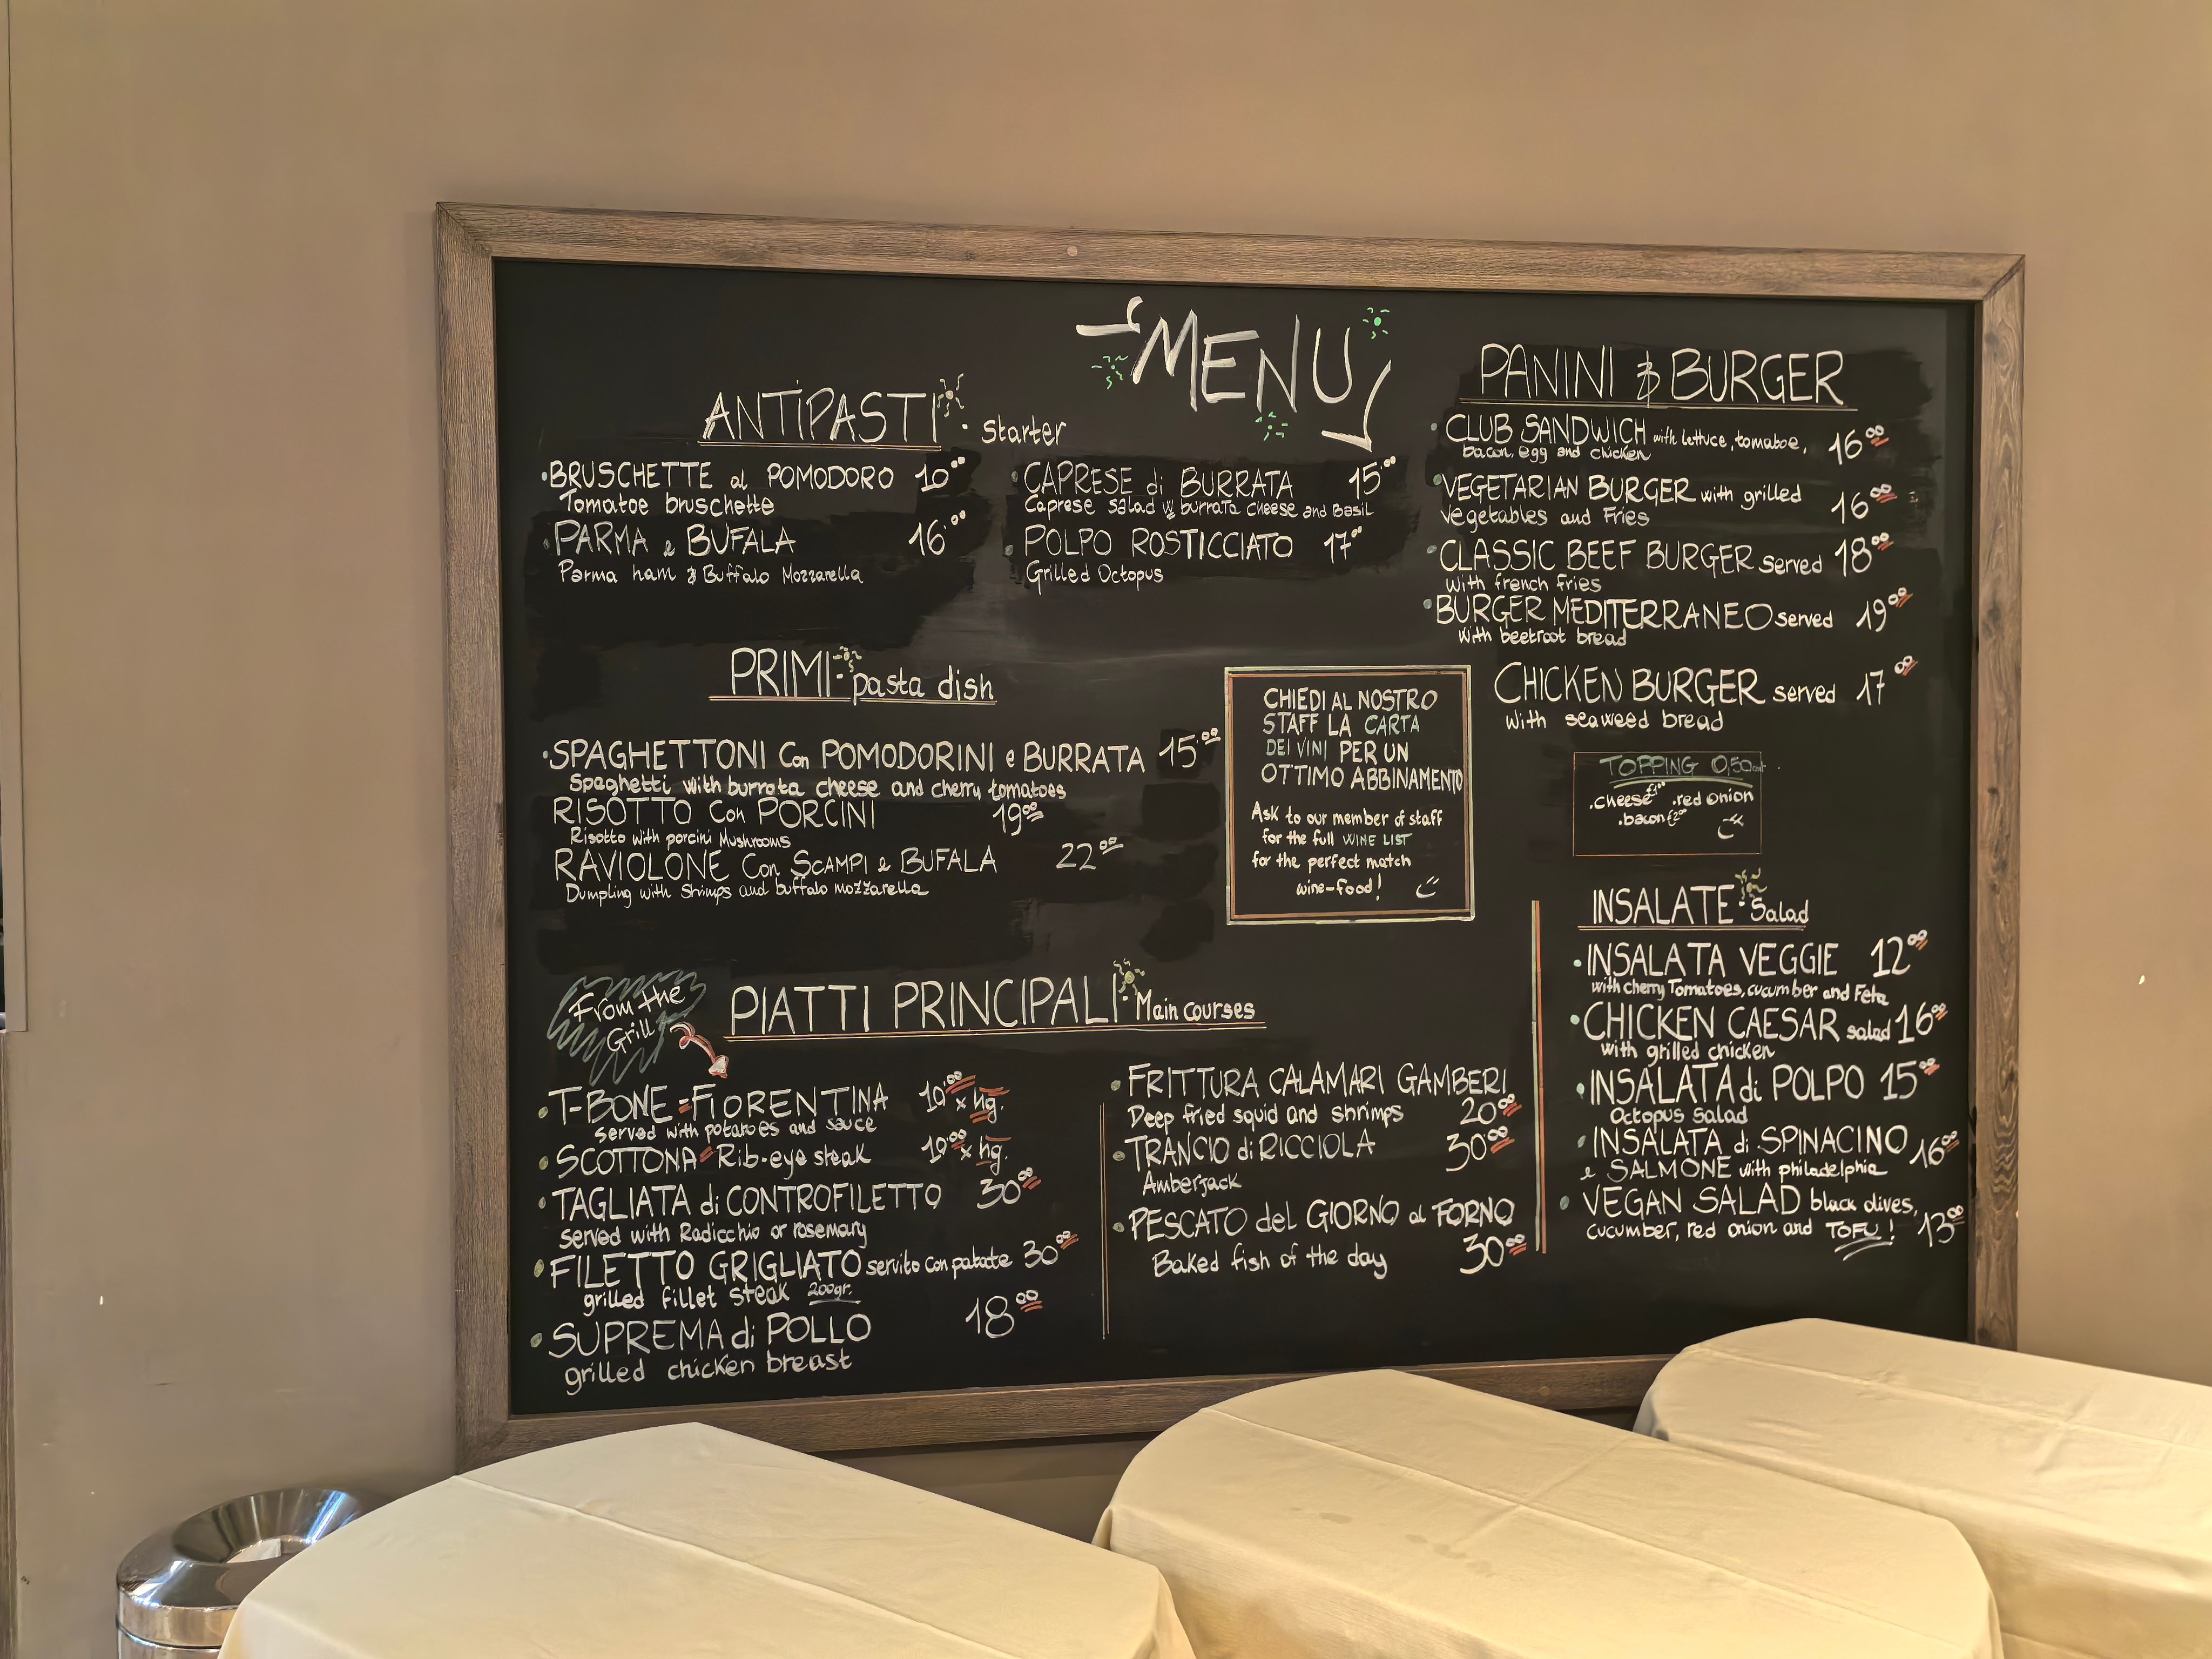 MENU
ANTIPASTI · Starter
· BRUSCHETTE al POMODORO 10°°
Tomatoe bruschette
· PARMA e BUFALA 16°°
Parma ham & Buffalo Mozzarella
· CAPRESE di BURRATA 15°°
Caprese salad w burrata cheese and Basil
· POLPO ROSTICCIATO 17°°
Grilled Octopus
PRIMI · pasta dish
· SPAGHETTONI Con POMODORINI e BURRATA 15°°
Spaghetti with burrata cheese and cherry tomatoes
RISOTTO Con PORCINI 19°°
Risotto with porcini Mushrooms
RAVIOLONE Con SCAMPI e BUFALA 22°°
Dumpling with Shrimps and buffalo mozzarella
CHIEDI AL NOSTRO
STAFF LA CARTA
DEI VINI PER UN
OTTIMO ABBINAMENTO
Ask to our member of staff
for the full WINE LIST
for the perfect match
wine-food!
From the
Grill
PIATTI PRINCIPALI · Main courses
· T-BONE = FIORENTINA 10°° x hg.
Served with potatoes and sauce
· SCOTTONA = Rib-eye steak 10°° x hg.
· TAGLIATA di CONTROFILETTO 30°°
served with Radicchio or rosemary
· FILETTO GRIGLIATO servito con patate 30°°
grilled fillet steak 200gr.
· SUPREMA di POLLO 18°°
grilled chicken breast
· FRITTURA CALAMARI GAMBERI
Deep fried squid and shrimps 20°°
· TRANCIO di RICCIOLA 30°°
Amberjack
· PESCATO del GIORNO al FORNO
Baked fish of the day 30°°
PANINI & BURGER
· CLUB SANDWICH with lettuce, tomatoe, 16°°
bacon, egg and chicken
· VEGETARIAN BURGER with grilled 16°°
vegetables and Fries
· CLASSIC BEEF BURGER served 18°°
with french fries
· BURGER MEDITERRANEO served 19°°
with beetroot bread
CHICKEN BURGER served 17°°
with seaweed bread
TOPPING 0,50cent
. cheese . red onion
. bacon
INSALATE · Salad
· INSALATA VEGGIE 12°°
with cherry Tomatoes, cucumber and Feta
· CHICKEN CAESAR salad 16°°
with grilled chicken
· INSALATA di POLPO 15°°
Octopus Salad
· INSALATA di SPINACINO 16°°
e SALMONE with philadelphia
· VEGAN SALAD black olives,
cucumber, red onion and TOFU! 13°°